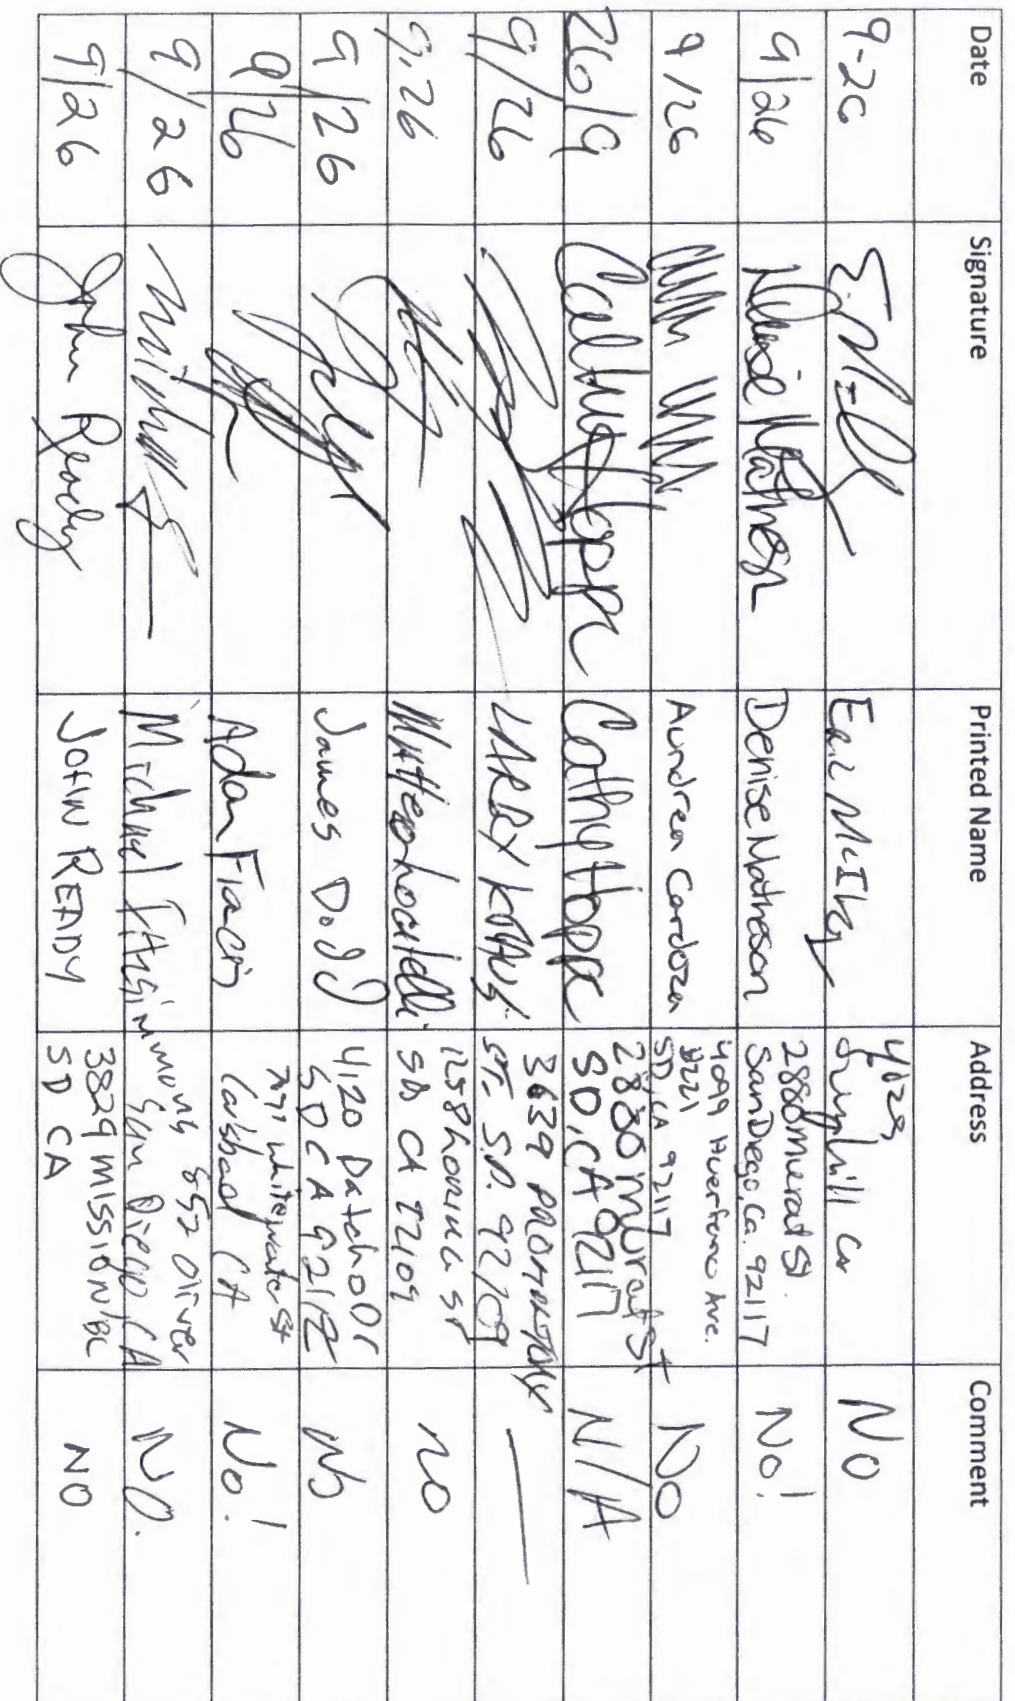 Date Signature Printed Name Address Comment
9-26 Eric McIlky No
9/26 Denise Matheson Denise Matheson 2880 Murat St. San Diego, Ca. 92117 No!
9/26 Aundrea Cardoza 4099 Ave. #221 SD, CA 92117 No
26/9 Cathy Hopper Cathy Hoppe 2880 Murat St SD, CA 92117 N/A
9/26 LARRY 3639 PROMONTORY ST. S.D. 92109 —
9.26 SD CA 92109 no
9/26 James Dodd 4120 Datcho Dr SDCA 92112 No
9/26 Adam Whitewater St Carlsbad CA No!
9/26 Michael Michael Fitzsimmons 852 Oliver San Diego, CA NO.
9/26 John Ready JOHN READY 3829 MISSION SD CA NO